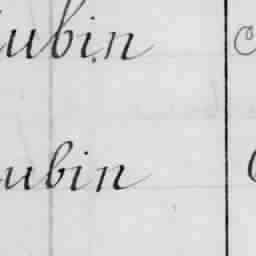 ubin
ubin